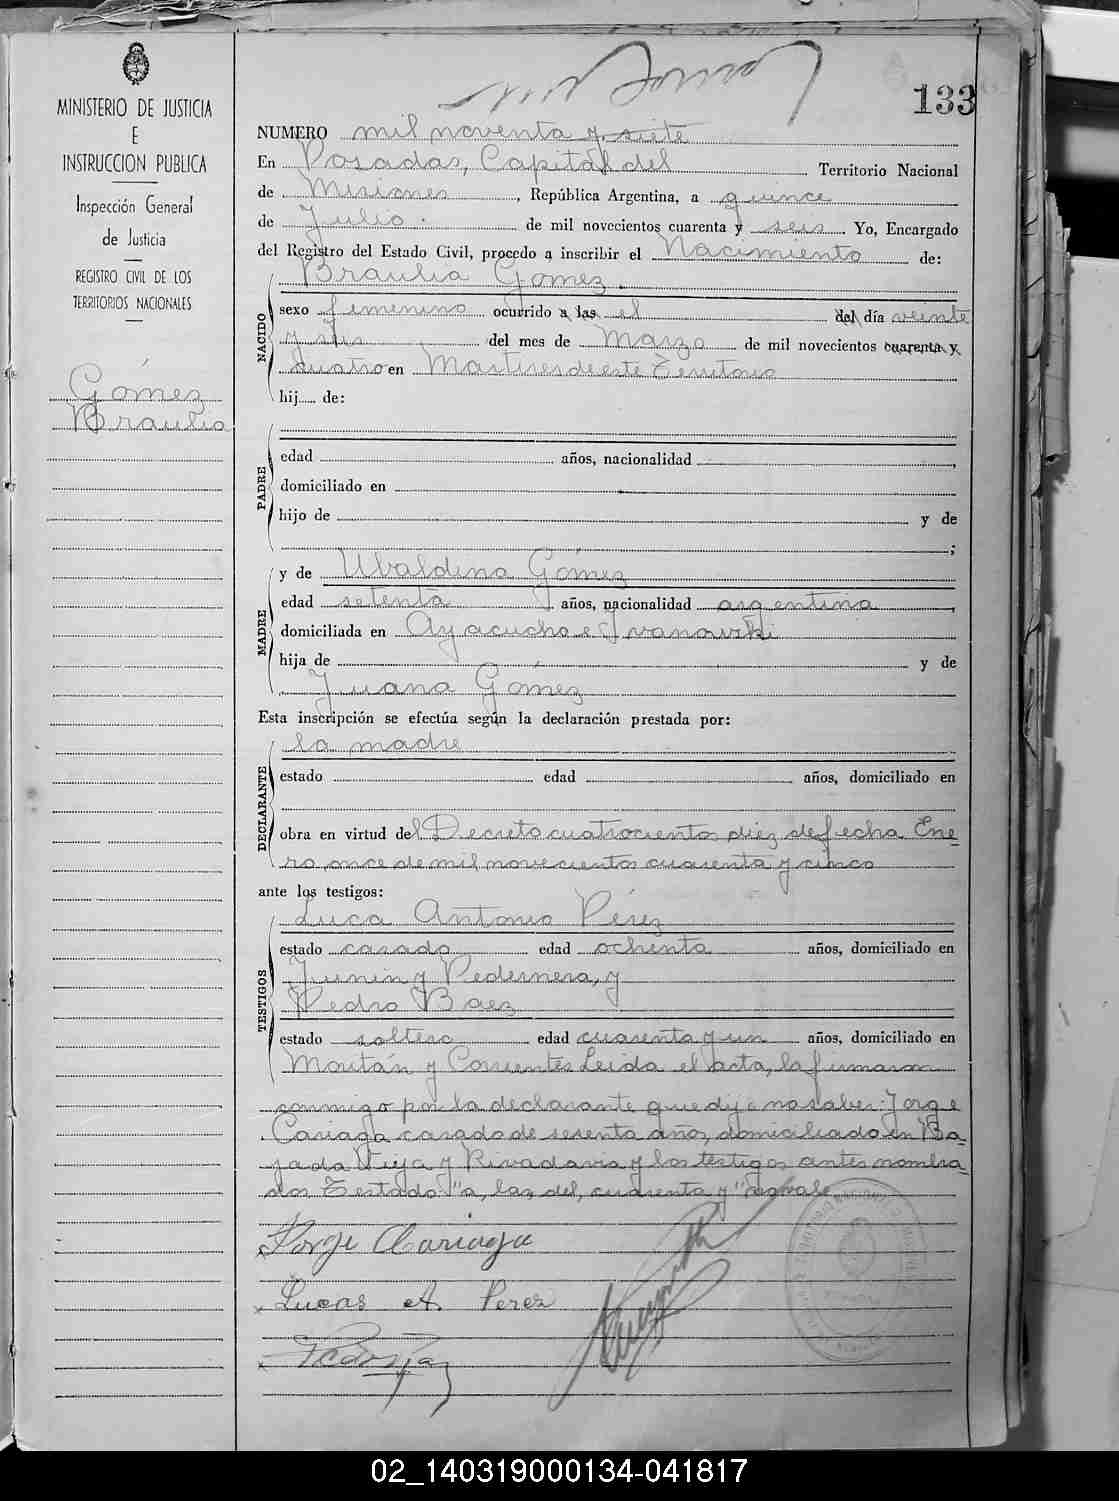 133
MINISTERIO DE JUSTICIA
E
INSTRUCCION PUBLICA
Inspección General
de Justicia
REGISTRO CIVIL DE LOS
TERRITORIOS NACIONALES
Gómez
Braulia
NUMERO mil noventa y siete
En Posadas, Capital del Territorio Nacional
de Misiones, República Argentina, a quince
de Julio. de mil novecientos cuarenta y seis. Yo, Encargado
del Registro del Estado Civil, procedo a inscribir el Nacimiento de:
NACIDO
Braulia Gomez.
sexo femenino ocurrido a las el del día veinte
y seis del mes de Marzo de mil novecientos cuarenta y
cuatro en Martires de este Territorio
hij..... de:
PADRE
edad años, nacionalidad ,
domiciliado en
hijo de y de
;
MADRE
y de Ubaldina Gómez
edad setenta años, nacionalidad argentina,
domiciliada en Ayacucho e Ivanowski
hija de y de
Juana Gómez
Esta inscripción se efectúa según la declaración prestada por:
DECLARANTE
la madre
estado edad años, domiciliado en
obra en virtud del Decreto cuatrocientos diez de fecha Ene-
ro once de mil novecientos cuarenta y cinco
ante los testigos:
TESTIGOS
Luca Antonio Pérez
estado casado edad ochenta años, domiciliado en
Junin y Pedernera, y
Pedro Baez
estado soltero edad cuarenta y un años, domiciliado en
y Corrientes Leida el acta, la firmaron
conmigo por la declarante que dijo no saber: Jorge
Cariaga casado de sesenta años, domiciliado en Ba-
jada Vieja y Rivadavia y los testigos antes nombra-
dos Testado: "a, las del, cuarenta y" no vale
Jorge Cariaga
Lucas A Perez
02_140319000134-041817